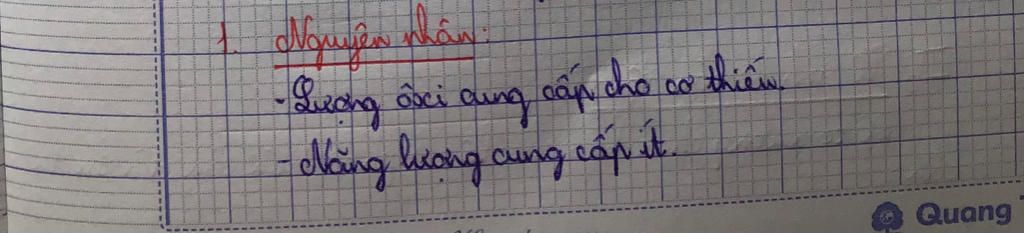 1. Nguyên nhân:
- Lượng ôxi cung cấp cho cơ thiếu.
- Năng lượng cung cấp ít.
Quang